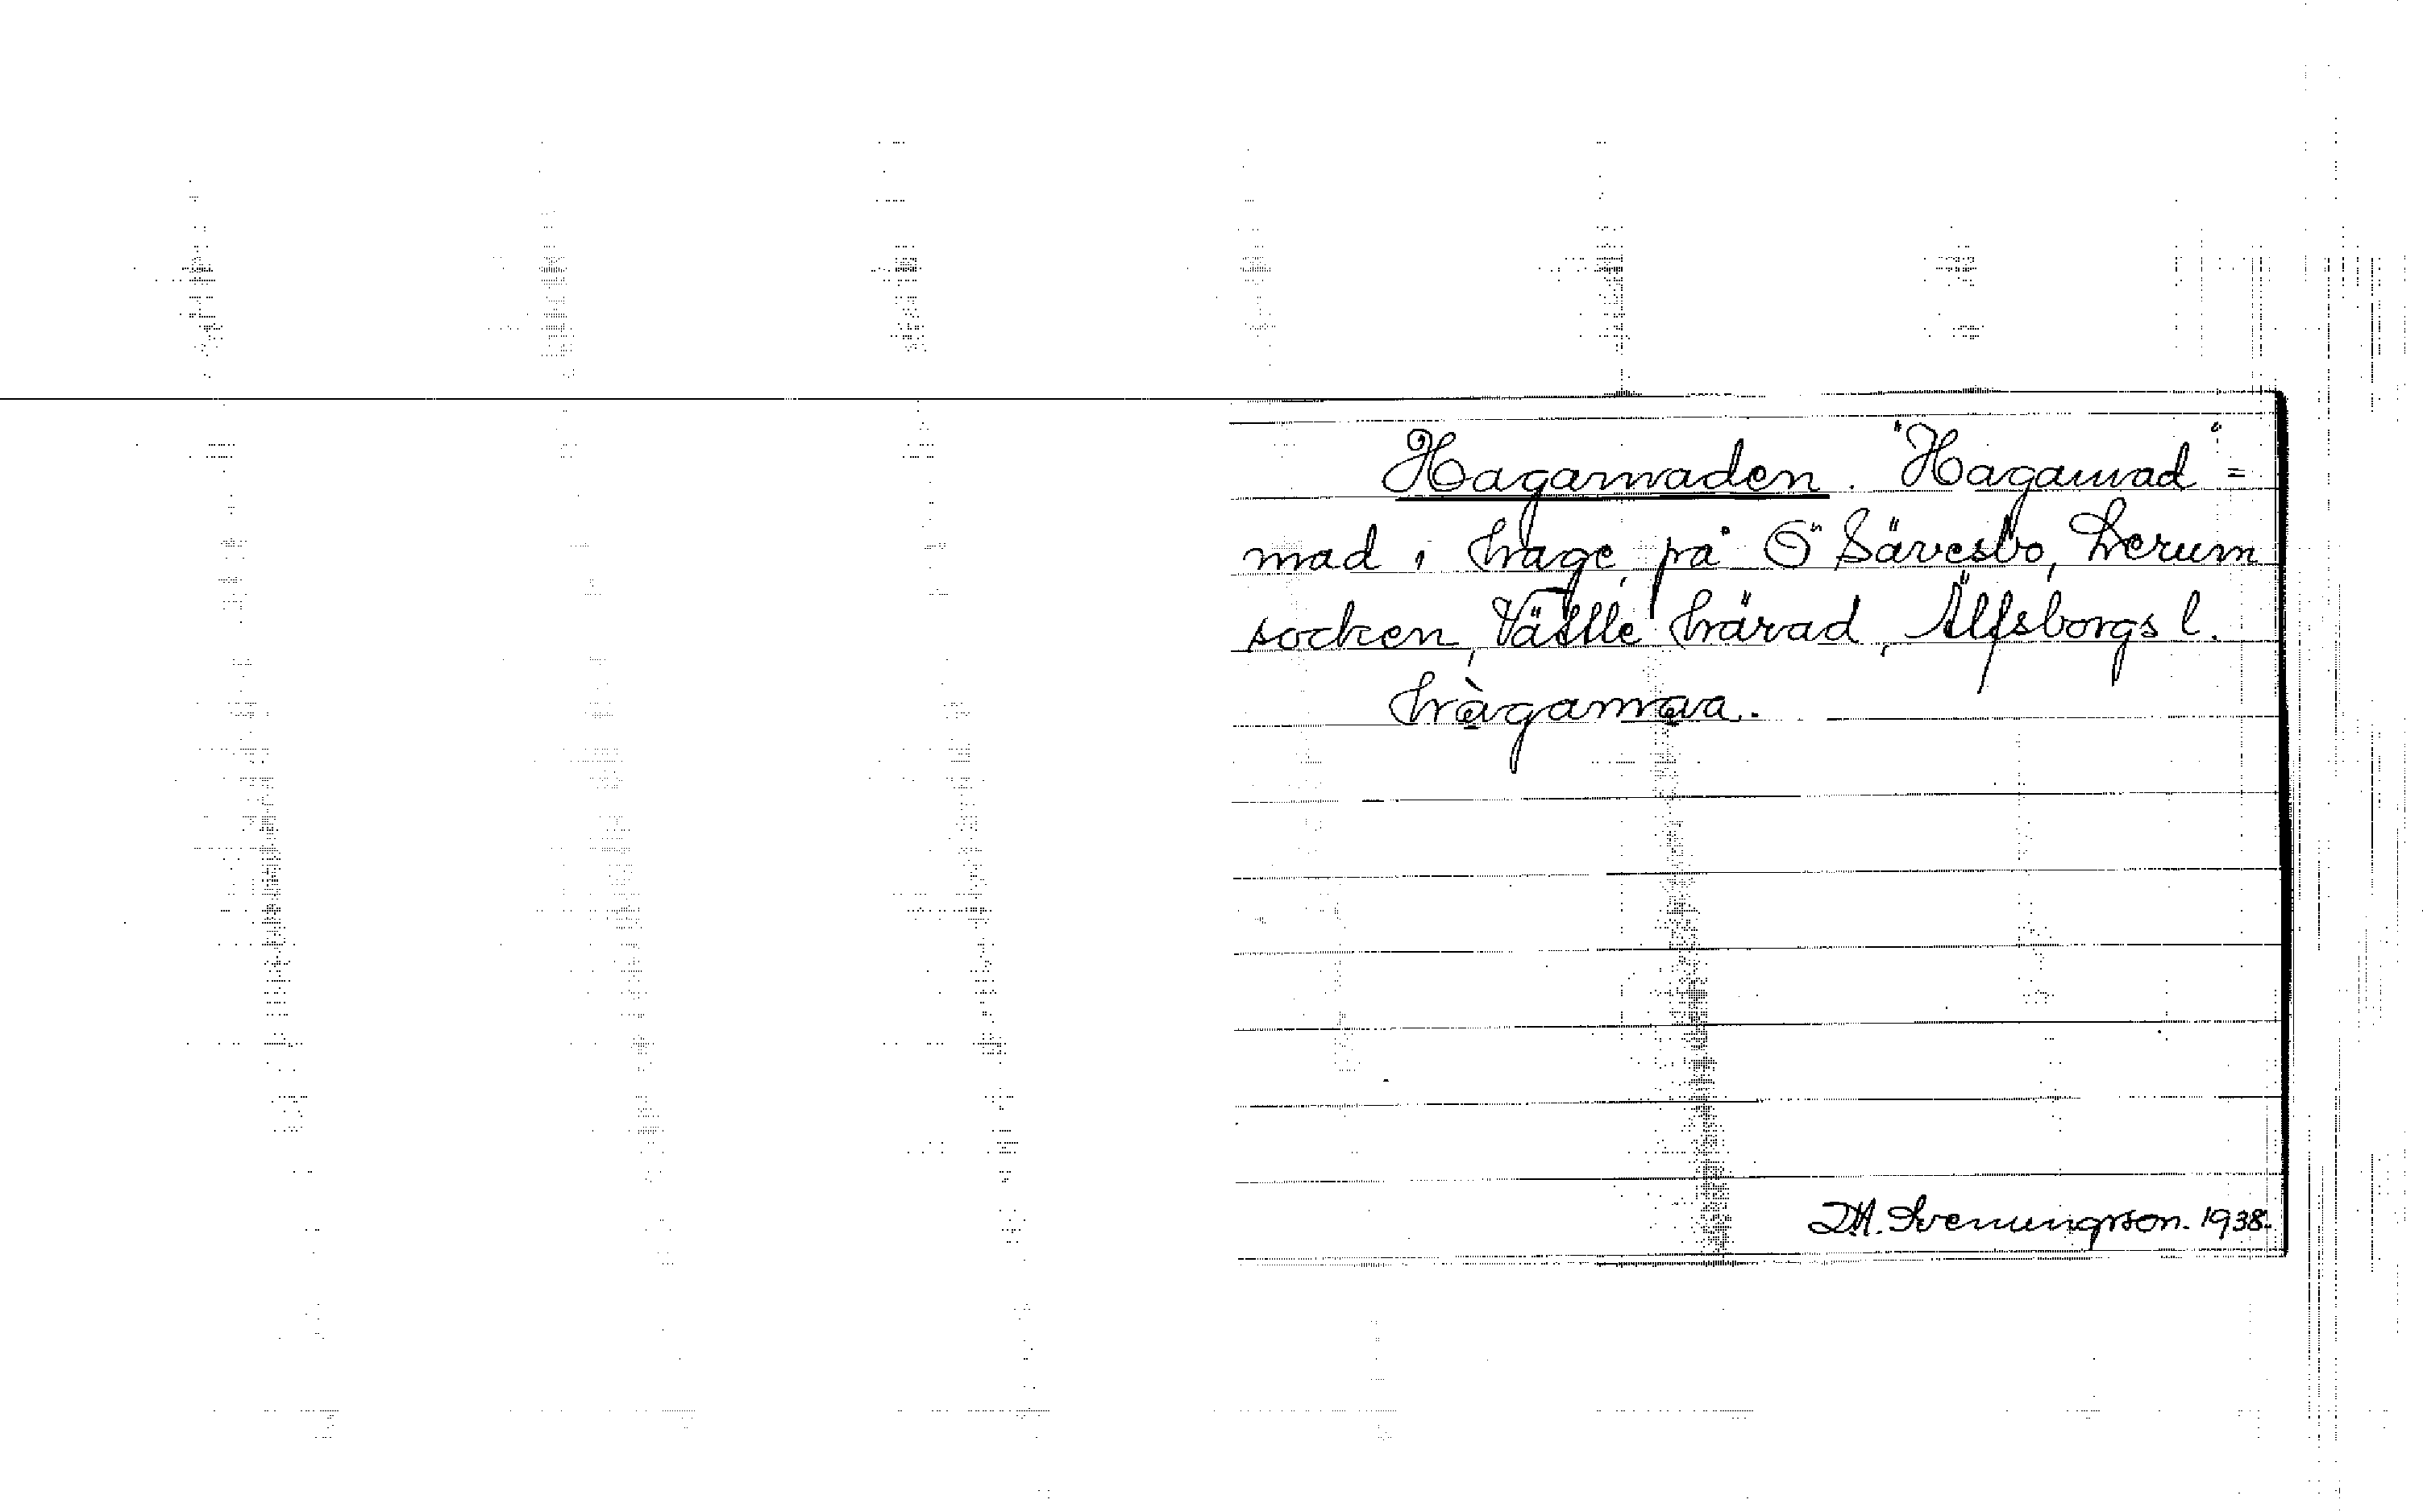 Hagamaden. "Hagamad" =
mad i hage på Ö Sävesbo, Lerum
socken, Vättle härad, Älfsborgs l.
hàgamaa.
D.H. Svenungsson. 1938.